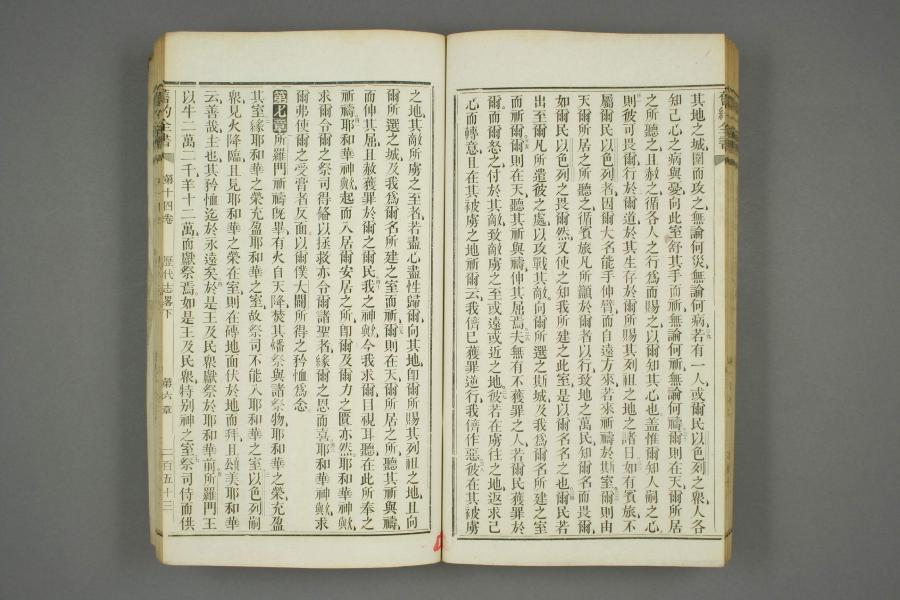 其地之城圍而攻之無論何災無論何病若有一人或爾民以色列之眾人各
知己心之病與憂向此室舒其手而祈無論何祈無論何禱爾則在天爾所居
之所聽之且赦之循各人之行爲而賜之以爾知其心也蓋惟爾知人嗣之心
則彼可畏爾行於爾道於其生存於爾所賜其列祖之地之諸日如有賓旅不
屬爾民以色列者因爾大名能手伸臂而自遠方來若來祈禱於斯室爾則由
天爾所居之所聽之循賓旅凡所籲於爾者以行致地之萬民知爾名而畏爾
如爾民以色列之畏爾然又使之知我所建之此室是以爾名名之也爾民若
出至爾凡所遣彼之處以攻戰其敵向爾所選之斯城及我爲爾名所建之室
而祈爾爾則在天聽其祈與禱伸其屈焉夫無有不獲罪之人若爾民獲罪於
爾而爾怒之付於其敵致敵虜之至或遠或近之地彼若在虜往之地返求己
心而轉意且在其被虜之地祈爾云我儕已獲罪逆行我儕作惡彼在其被虜
之地其敵所虜之至者若盡心盡性歸爾向其地卽爾所賜其列祖之地且向
爾所選之城及我爲爾名所建之室而祈爾則在天爾所居之所聽其祈與禱
而伸其屈且赦獲罪於爾之爾民我之神歟今我求爾目視耳聽在此所奉之
祈禱耶和華神歟起而入居爾安居之所卽爾及爾力之匱亦然耶和華神歟
求爾令爾之祭司得修以拯救亦令爾諸聖者緣爾之恩而喜耶和華神歟求
爾弗使爾之受膏者反面以爾僕大闢所得之矜恤爲念
第七章所羅門祈禱旣畢有火自天降焚其燔祭與諸祭物耶和華之榮充盈
其室緣耶和華之榮充盈耶和華之室故祭司不能入耶和華之室以色列嗣
眾見火降臨且見耶和華之榮在室則在磚地面伏於地而拜且頌美耶和華
云善哉主也其矜恤迄於永遠矣於是王及民眾獻祭於耶和華前所羅門王
以牛二萬二千羊十二萬而獻祭焉如是王及民眾特別神之室祭司侍而供
舊約全書
第十四卷
歷代志畧下
第六章
二百五十三